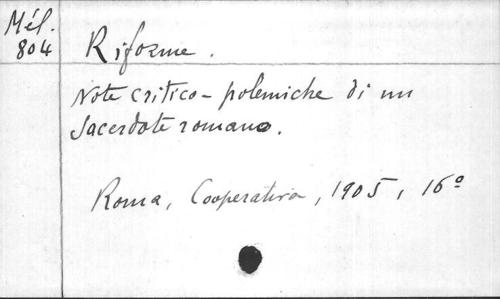 Mél.
804
Riforme.
Note critico-polemiche di un
Sacerdote romano.
Roma, Cooperativa, 1905, 16º